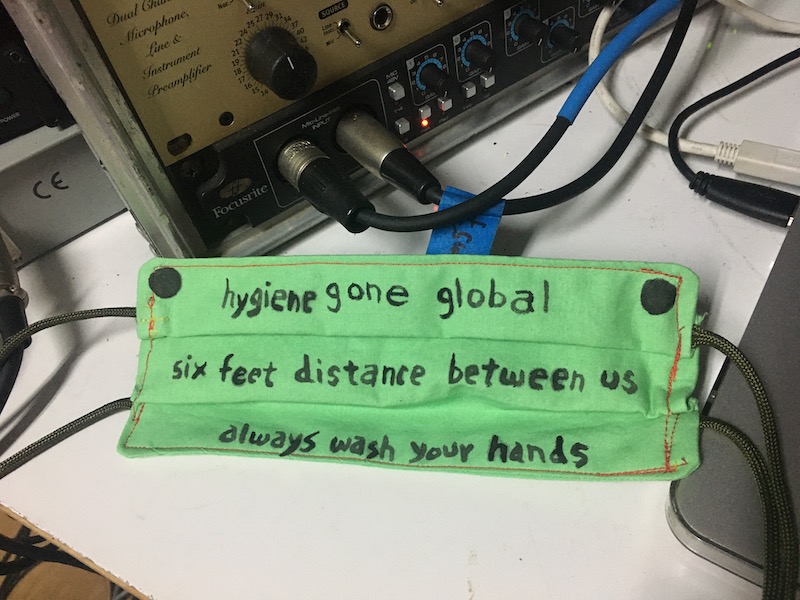 Dual Channel
Microphone,
Line &
Instrument
Preamplifier
SOURCE
POWER
CE
Focusrite
Mic/Line/Inst
INPUT
hygiene gone global
six feet distance between us
always wash your hands